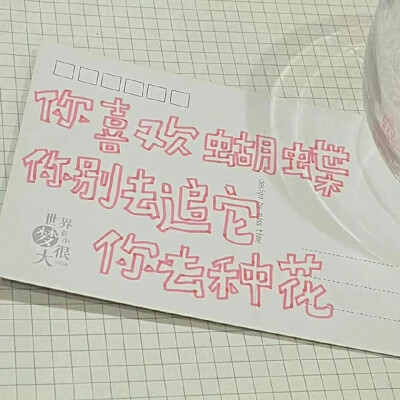 你喜欢蝴蝶
你别去追它
你去种花
世界
梦
大很